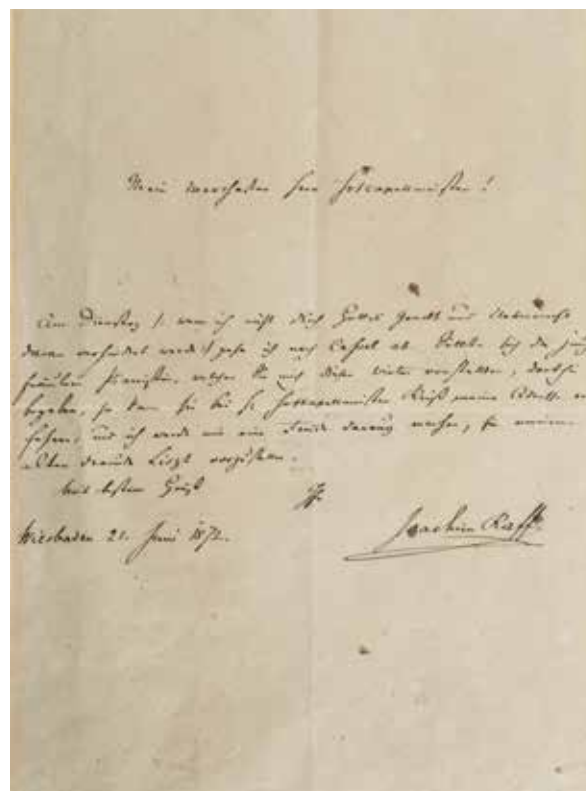 Mein verehrter Herr Hofcapellmeister!
Am Dienstag /: wenn ich nicht durch Gottes Gewalt und
daran verhindert werde :/ gehe ich nach Cassel ab. Sollte sich die
Fräulein Pianistin, welche Sie mir diesen Winter vorstellten, dorthin
begeben, so kann sie bei H. Hofcapellmeister Reiß meine Adresse er
fahren, und ich werde mir eine Freude daraus machen, sie meinem
alten Freunde Liszt vorzustellen.
Mit bestem Gruß
Ihr
Wiesbaden 21. Juni 1872.
Joachim Raff